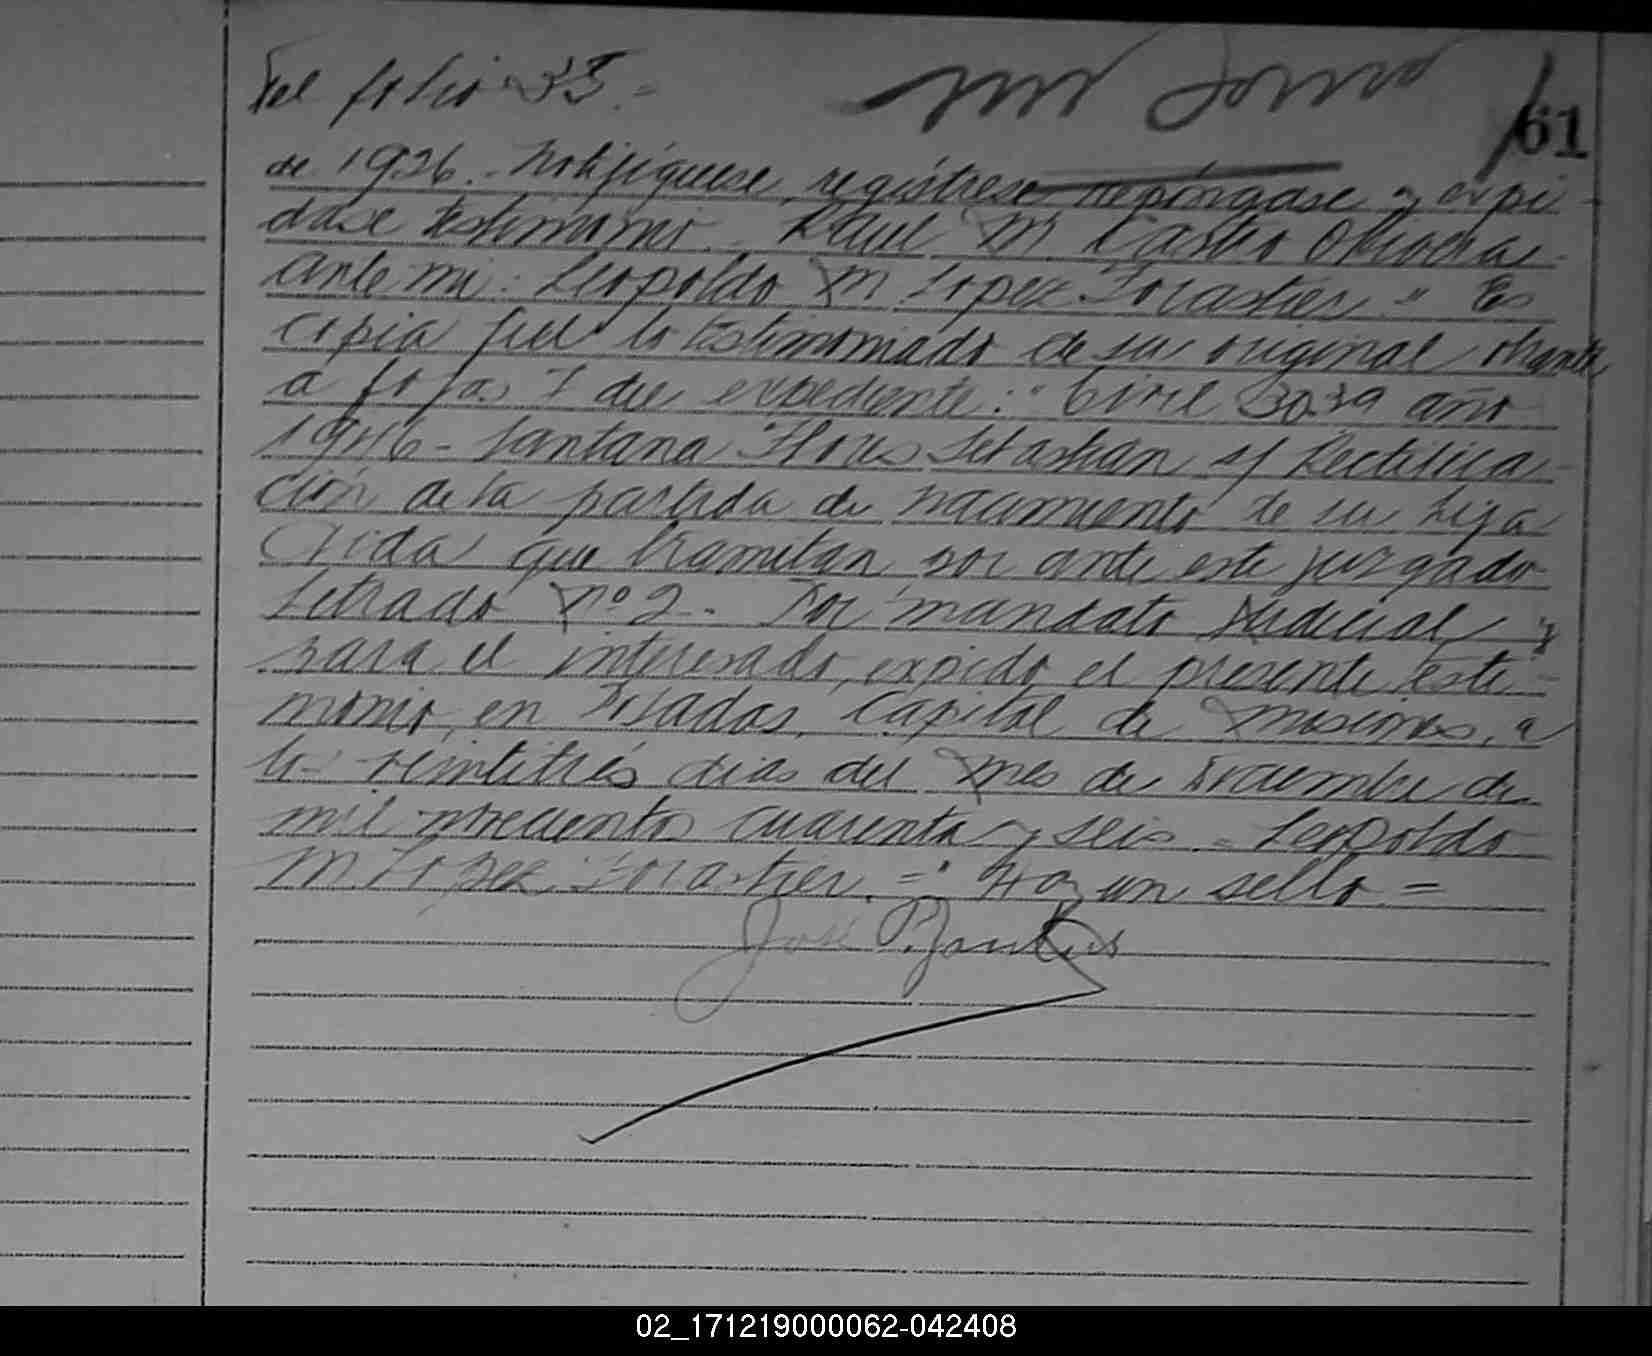 Del folio 33.=
61
de 1926.- Notifíquese, regístrese repóngase y expí-
dase testimonio.- Raul M. Castro Olivera
Ante mi: Leopoldo M Lopez Forastier." Es
copia fiel lo testimoniado de su original obrante
a fojas 7 del expediente: "Civil año
1946- Santana Flores Sebastian s/ Rectifica-
ción de la partida de nacimiento de su hija
que tramitan por ante este juzgado
Letrado Nº 2.- Por mandato Judicial y
para el interesado, expido el presente testi-
monio, en Posadas, Capital de Misiones, a
los veintitrés dias del mes de Diciembre de
mil novecientos cuarenta y seis.- Leopoldo
M. Lopez Forastier.=" Hay un sello.=
José
02_171219000062-042408